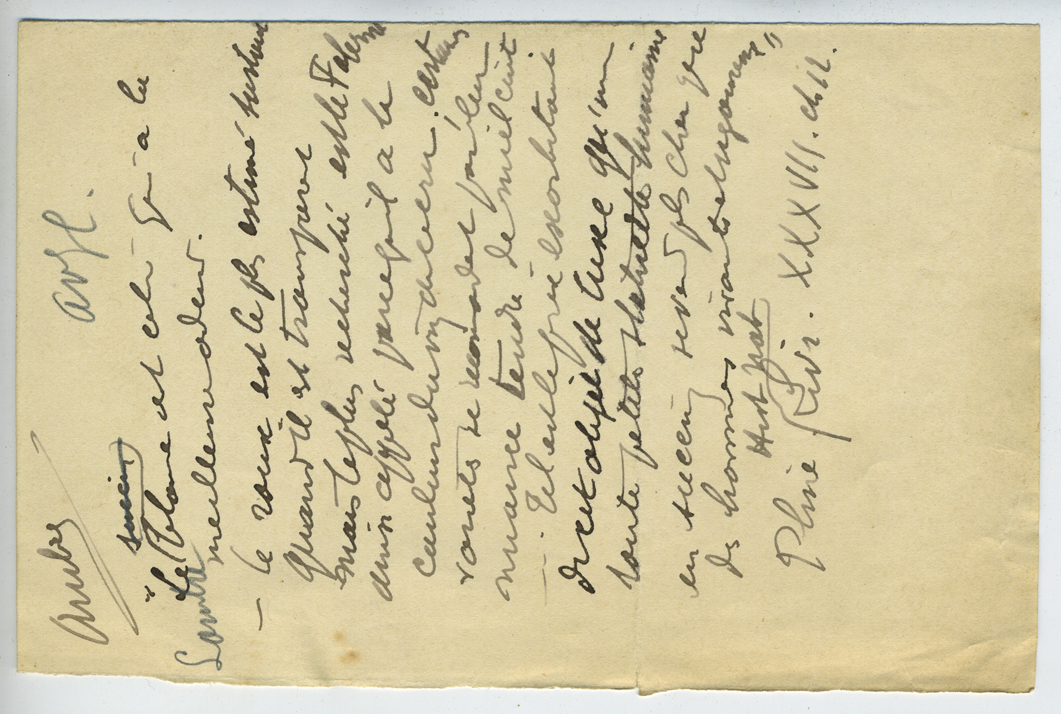 Ambre
avgl.
succin
"Le blanc est celui qui a la
Lambre
meilleure odeur.
— le roux est le plus estimé surtout
quand il est transparent
mais le plus recherché est le Falerne
ainsi appelé parce qu'il a la
couleur du vin, de ce cru. Certains
variétés se recommandent par leur
nuance tendre de miel cuit
— Tel est le prix exorbitant
de cet objet de luxe qu'une
toute petite statuette humaine
en succin, se vend plus cher que
des hommes vivants et vigoureux"
Hist nat
Pline Liv. XXXVII. ch 12.